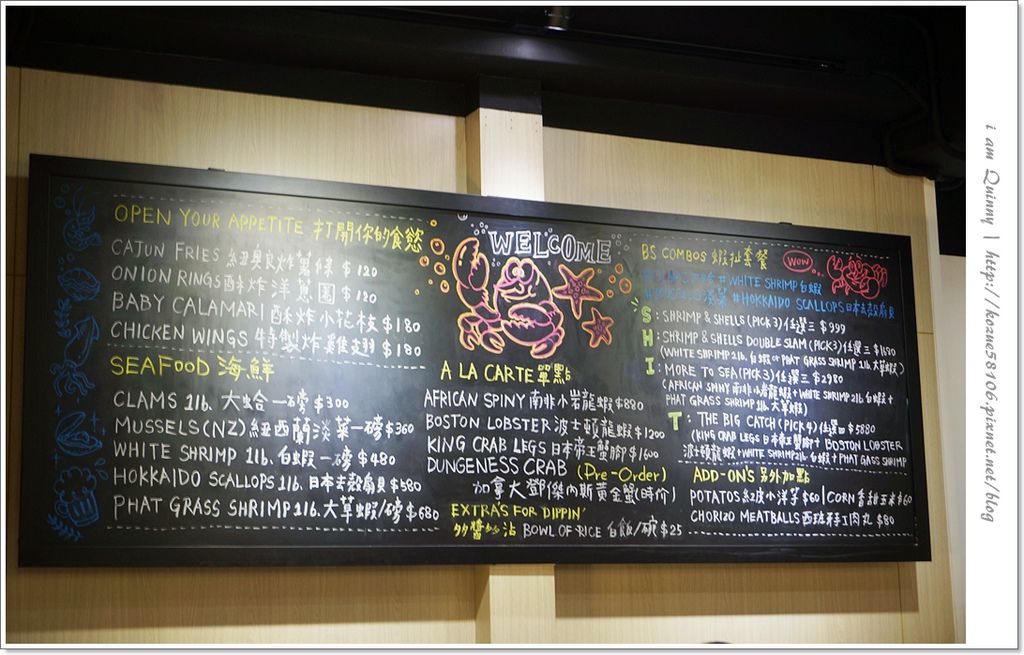 OPEN YOUR APPETITE 打開你的食慾
CAJUN FRIES 紐奧良炸薯條 $120
ONION RINGS 酥炸洋蔥圈 $120
BABY CALAMARI 酥炸小花枝 $180
CHICKEN WINGS 特製炸雞翅 $180
SEAFOOD 海鮮
CLAMS 1lb. 大蛤一磅 $300
MUSSELS(NZ) 紐西蘭淡菜一磅 $360
WHITE SHRIMP 1lb. 白蝦一磅 $480
HOKKAIDO SCALLOPS 1lb. 日本去殼扇貝 $580
PHAT GRASS SHRIMP 1lb. 大草蝦/磅 $680
WELCOME
A LA CARTE 單點
AFRICAN SPINY 南非小岩龍蝦 $880
BOSTON LOBSTER 波士頓龍蝦 $1200
KING CRAB LEGS 日本帝王蟹腳 $1600
DUNGENESS CRAB (Pre-Order)
加拿大鄧傑內斯黃金蟹(時价)
EXTRA'S FOR DIPPIN'
多醬紗沾 BOWL OF RICE 白飯/碗 $25
BS COMBOS 蝦扯套餐
WOW
#WHITE SHRIMP 白蝦
#HOKKAIDO SCALLOPS 日本去殼扇貝
S: SHRIMP & SHELLS (PICK3) 任選三 $999
H: SHRIMP & SHELLS DOUBLE SLAM (PICK3) 任選三 $1680
(WHITE SHRIMP 2lb. 白蝦 or PHAT GRASS SHRIMP 1lb. 大草蝦)
I: MORE TO SEA (PICK3) 任選三 $2980
(AFRICAN SPINY 南非小岩龍蝦 + WHITE SHRIMP 2lb 白蝦 +
PHAT GRASS SHRIMP 1lb. 大草蝦)
T: THE BIG CATCH (PICK4) 任選四 $5880
(KING CRAB LEGS 日本帝王蟹腳 + BOSTON LOBSTER
波士頓龍蝦 + WHITE SHRIMP 2lb 白蝦 + PHAT GRASS SHRIMP
ADD-ON'S 另外加點
POTATOS 紅皮小洋芋 $60 | CORN 香甜玉米 $60
CHORIZO MEATBALLS 西班牙肉丸 $80
i am Quinny | http://kozue58106.pixnet.net/blog